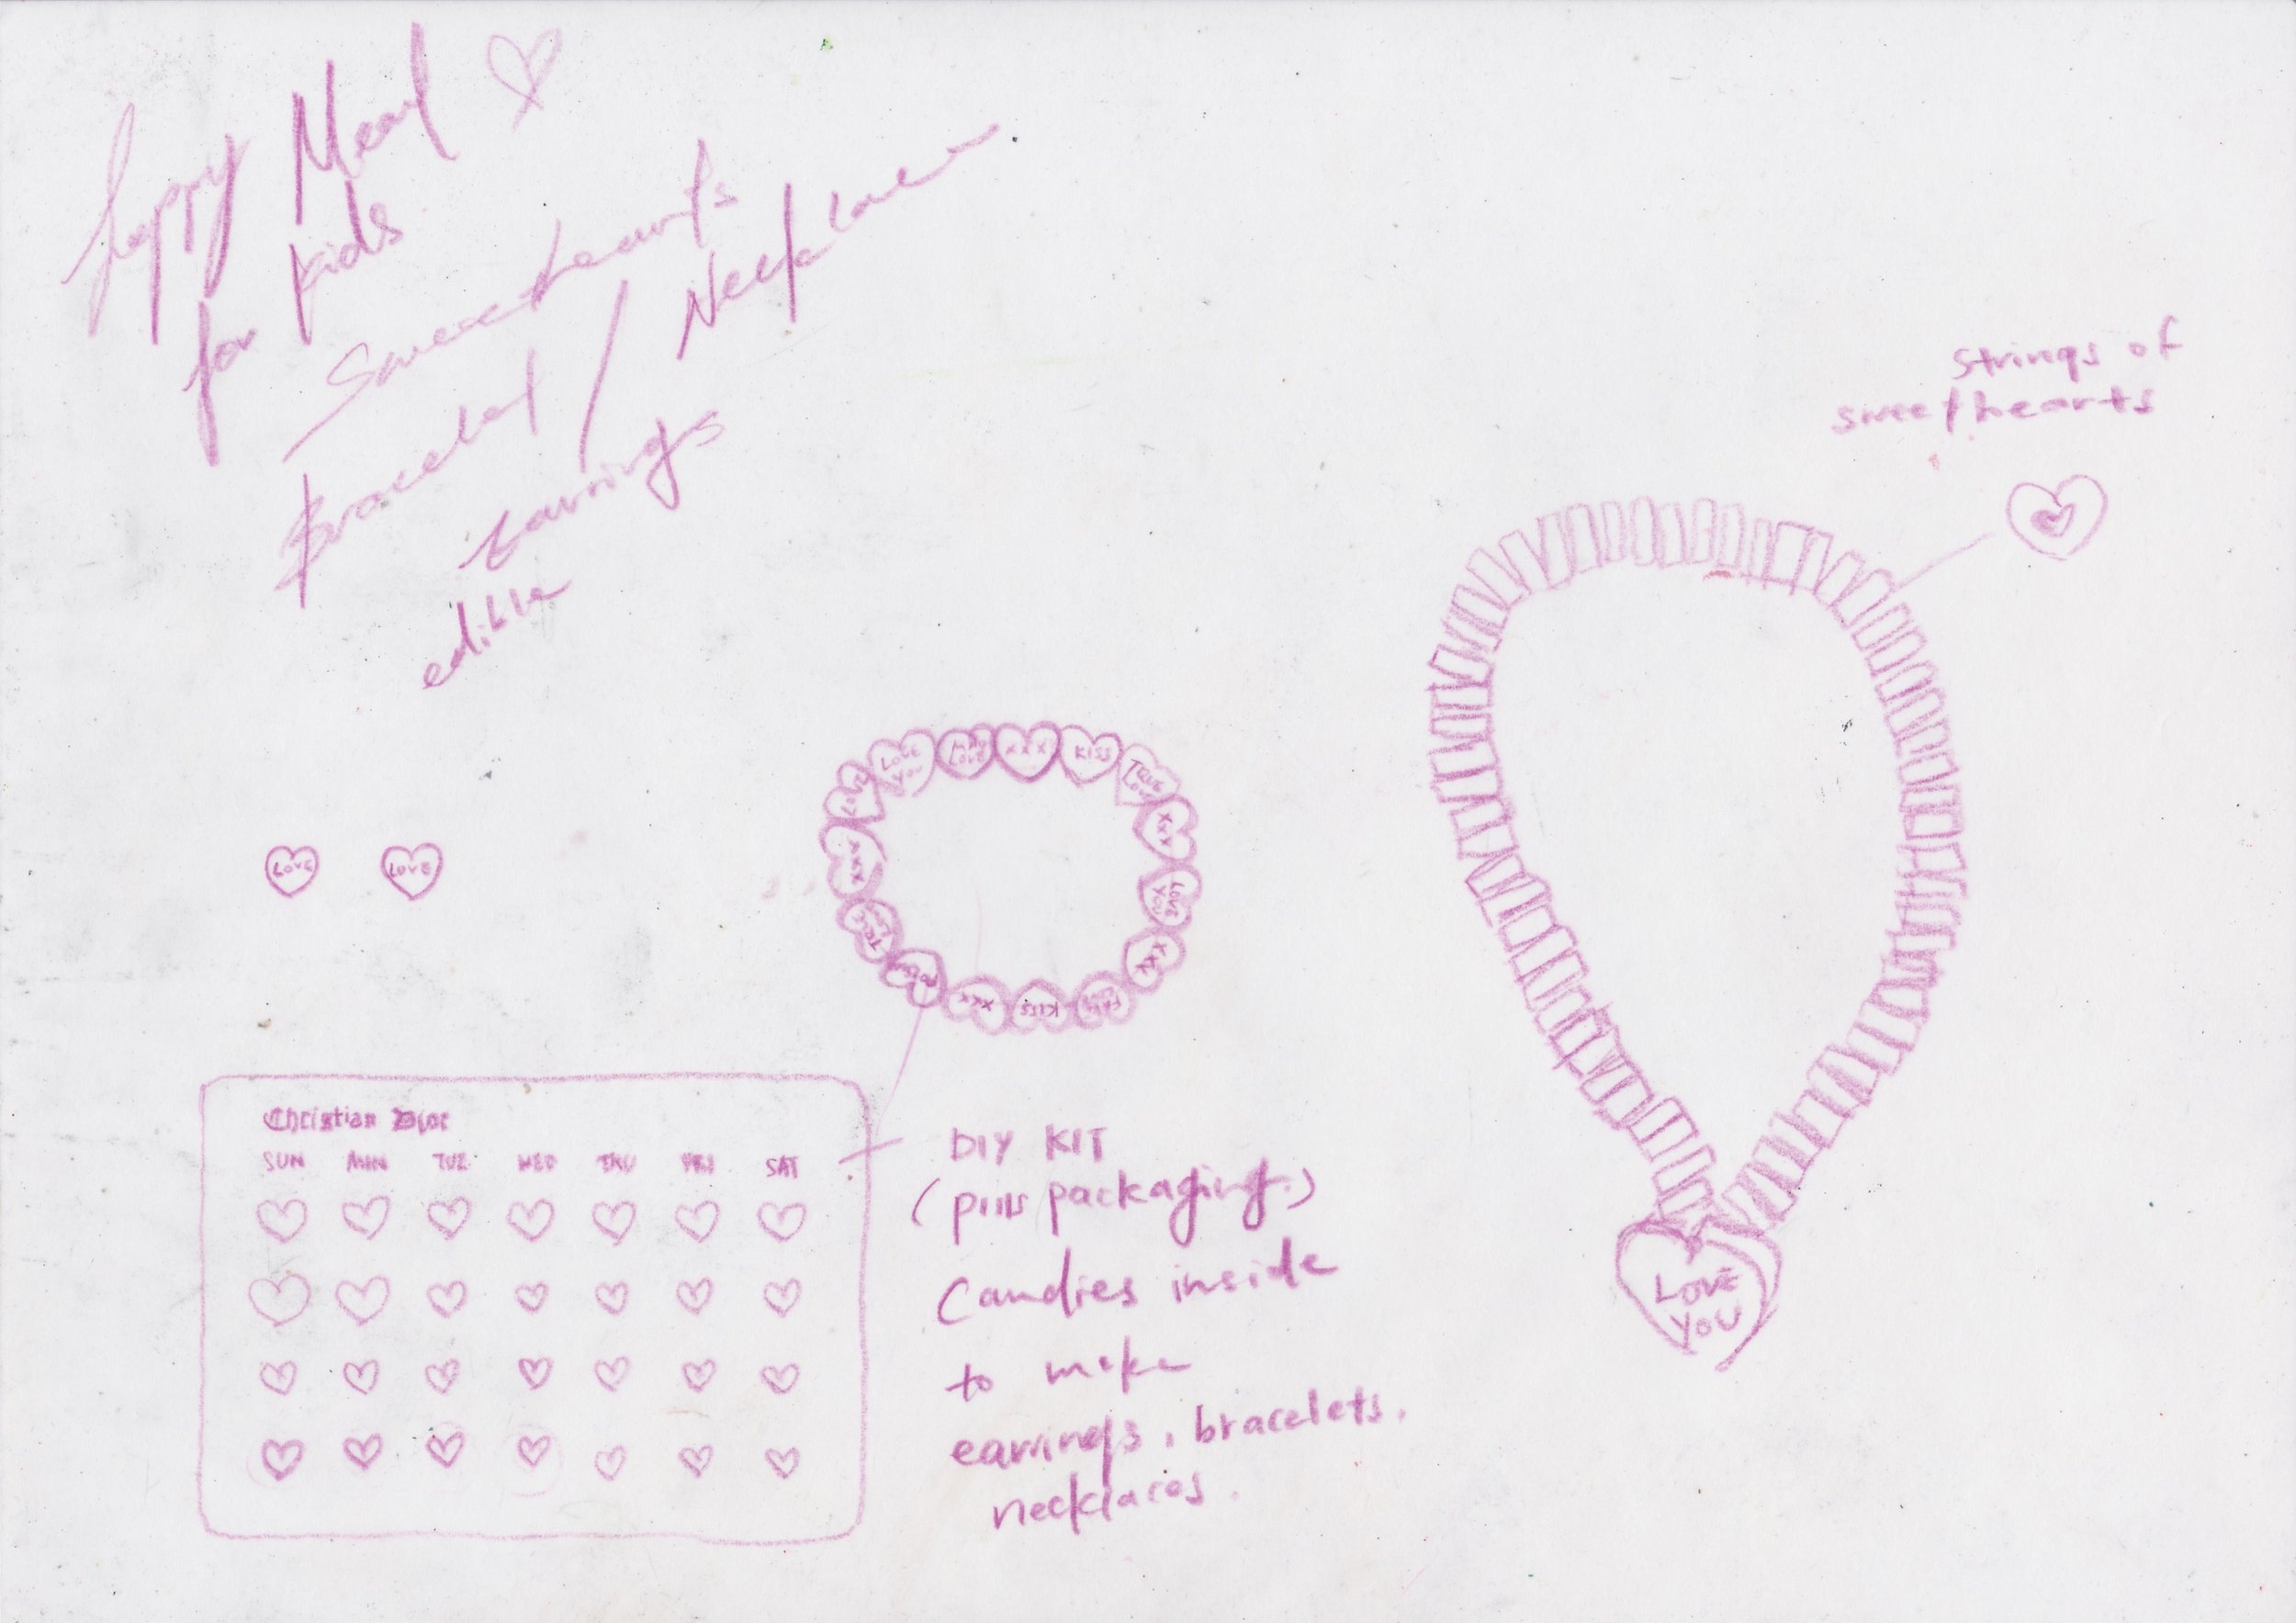 happy Meal
for kids
Sweethearts
Bracelet / Necklace
Earrings
edible
Strings of
sweethearts
LOVE
YOU
MY
LOVE
XXX
KISS
TRUE
LOVE
XXX
LOVE
YOU
XXX
KISS
XXX
TRUE
XXX
LOVE
LOVE
LOVE
Christian Dior
SUN MON TUE WED THU FRI SAT
DIY KIT
(pills packaging)
Candies inside
to make
earrings, bracelets.
necklaces.
LOVE
YOU